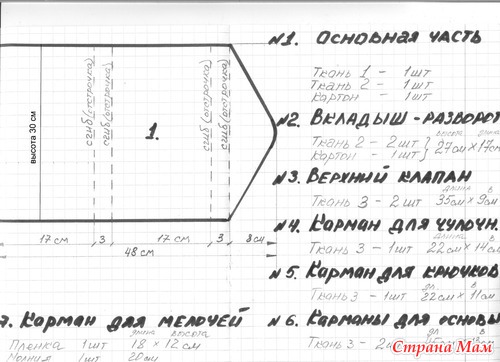 №1. Основная часть
Ткань 1 - 1шт
Ткань 2 - 1шт
Картон - 1шт
№2. Вкладыш-разворот
высота длина
Ткань 2 - 2шт } 27см х 17см
Картон - 1шт
№3. Верхний клапан
длина в
Ткань 3 - 2 шт 35см х 9см
№4. Карман для чулочн.
длина в
Ткань 3 - 1шт 22см х 14см
№5. Карман для крючков
дл в
Ткань 3 - 1шт 22см х 11см
№6. Карманы для основы
Ткань 3 - 2шт
высота 30 см
сгиб (отстрочка)
сгиб (отстрочка)
сгиб (отстрочка)
сгиб (отстрочка)
1.
17 см 3 17 см 3 8 см
48 см
7. Карман для мелочей
длина высота
Пленка 1шт 18 х 12 см
Молния 1шт 20см
Страна Мам